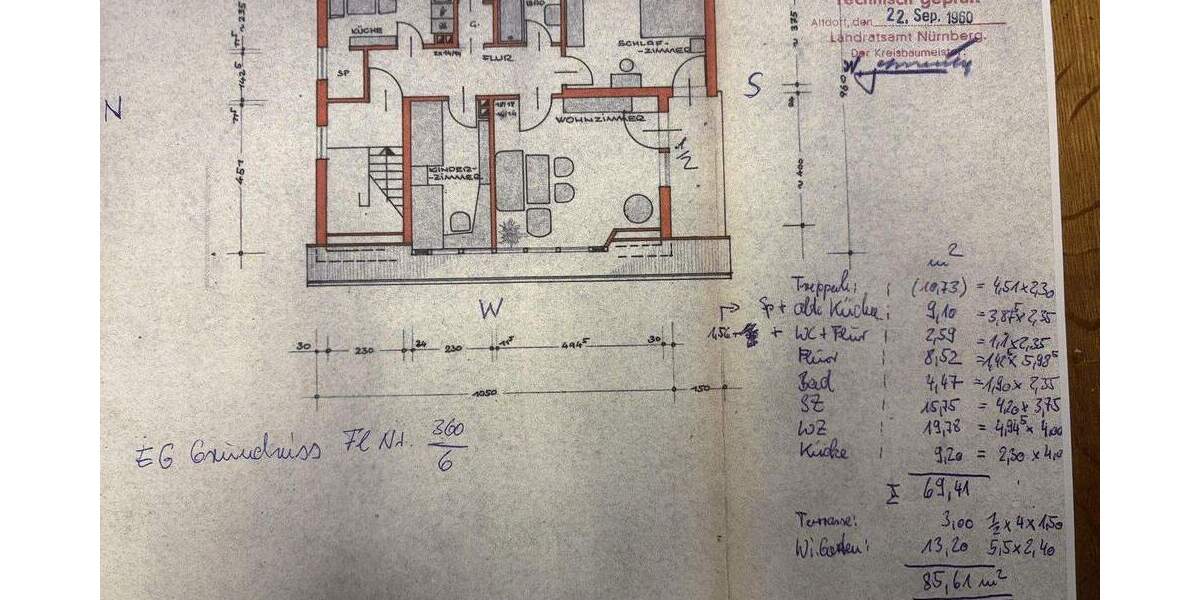 Technisch geprüft
Altdorf, den 22. Sep. 1960
Landratsamt Nürnberg.
Der Kreisbaumeister
KÜCHE
BAD
G.
FLUR
SCHLAF-
-ZIMMER
SP
WOHNZIMMER
KINDER-
-ZIMMER
1/2
N
S
W
~235
142⁵
11⁵
451
~375
~400
960
30 230 24 230 11⁵ 494⁵ 30
1050 150
EG Grundriss Fl Nr. 360/6
m²
Treppenh: (10,73) = 4,51 x 2,30
Sp + alte Küche: 9,10 = 3,87⁵ x 2,35
1,56 + WC + Flur 2,59 = 1,1 x 2,35
Flur 8,52 = 1,42⁵ x 5,98⁵
Bad 4,47 = 1,90 x 2,35
SZ 15,75 = 4,20 x 3,75
WZ 19,78 = 4,94⁵ x 4,00
Küche 9,20 = 2,30 x 4,0
Σ 69,41
Terrasse: 3,00 1/2 x 4 x 1,50
Wi.Garten: 13,20 5,5 x 2,40
85,61 m²